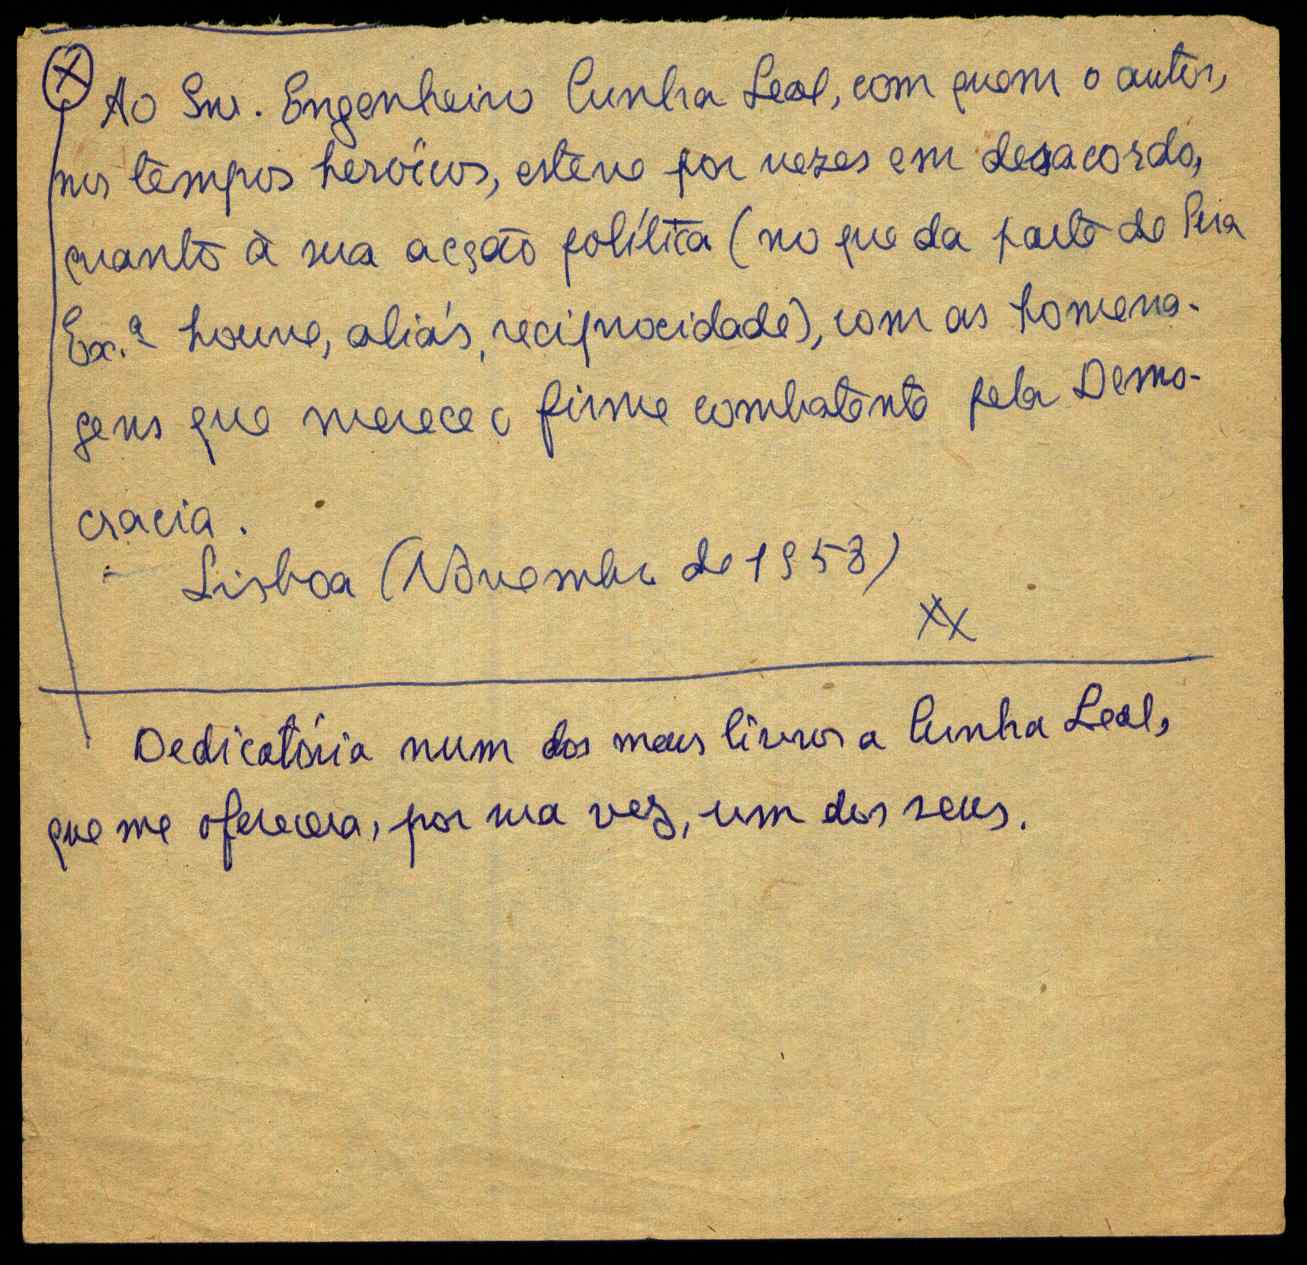 X Ao Snr. Engenheiro Cunha Leal, com quem o autor,
nos tempos heróicos, esteve por vezes em desacordo,
quanto à sua acção política (no que da parte de Sua
Ex.ª houve, aliás, reciprocidade), com as homena-
gens que merece o firme combatente pela Demo-
cracia.
Lisboa (Novembro de 1958)
XX
Dedicatória num dos meus livros a Cunha Leal,
que me oferecera, por sua vez, um dos seus.